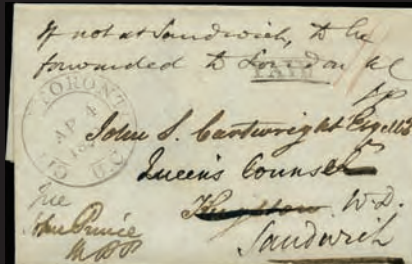 If not at Sandwich, to be
forwarded to London
PAID
TORONTO
AP 4
18
CITY U.C
John S. Cartwright Esq
Queen's Counsel
Kingston W.D.
Sandwich
Free
John Prince
M.P.P